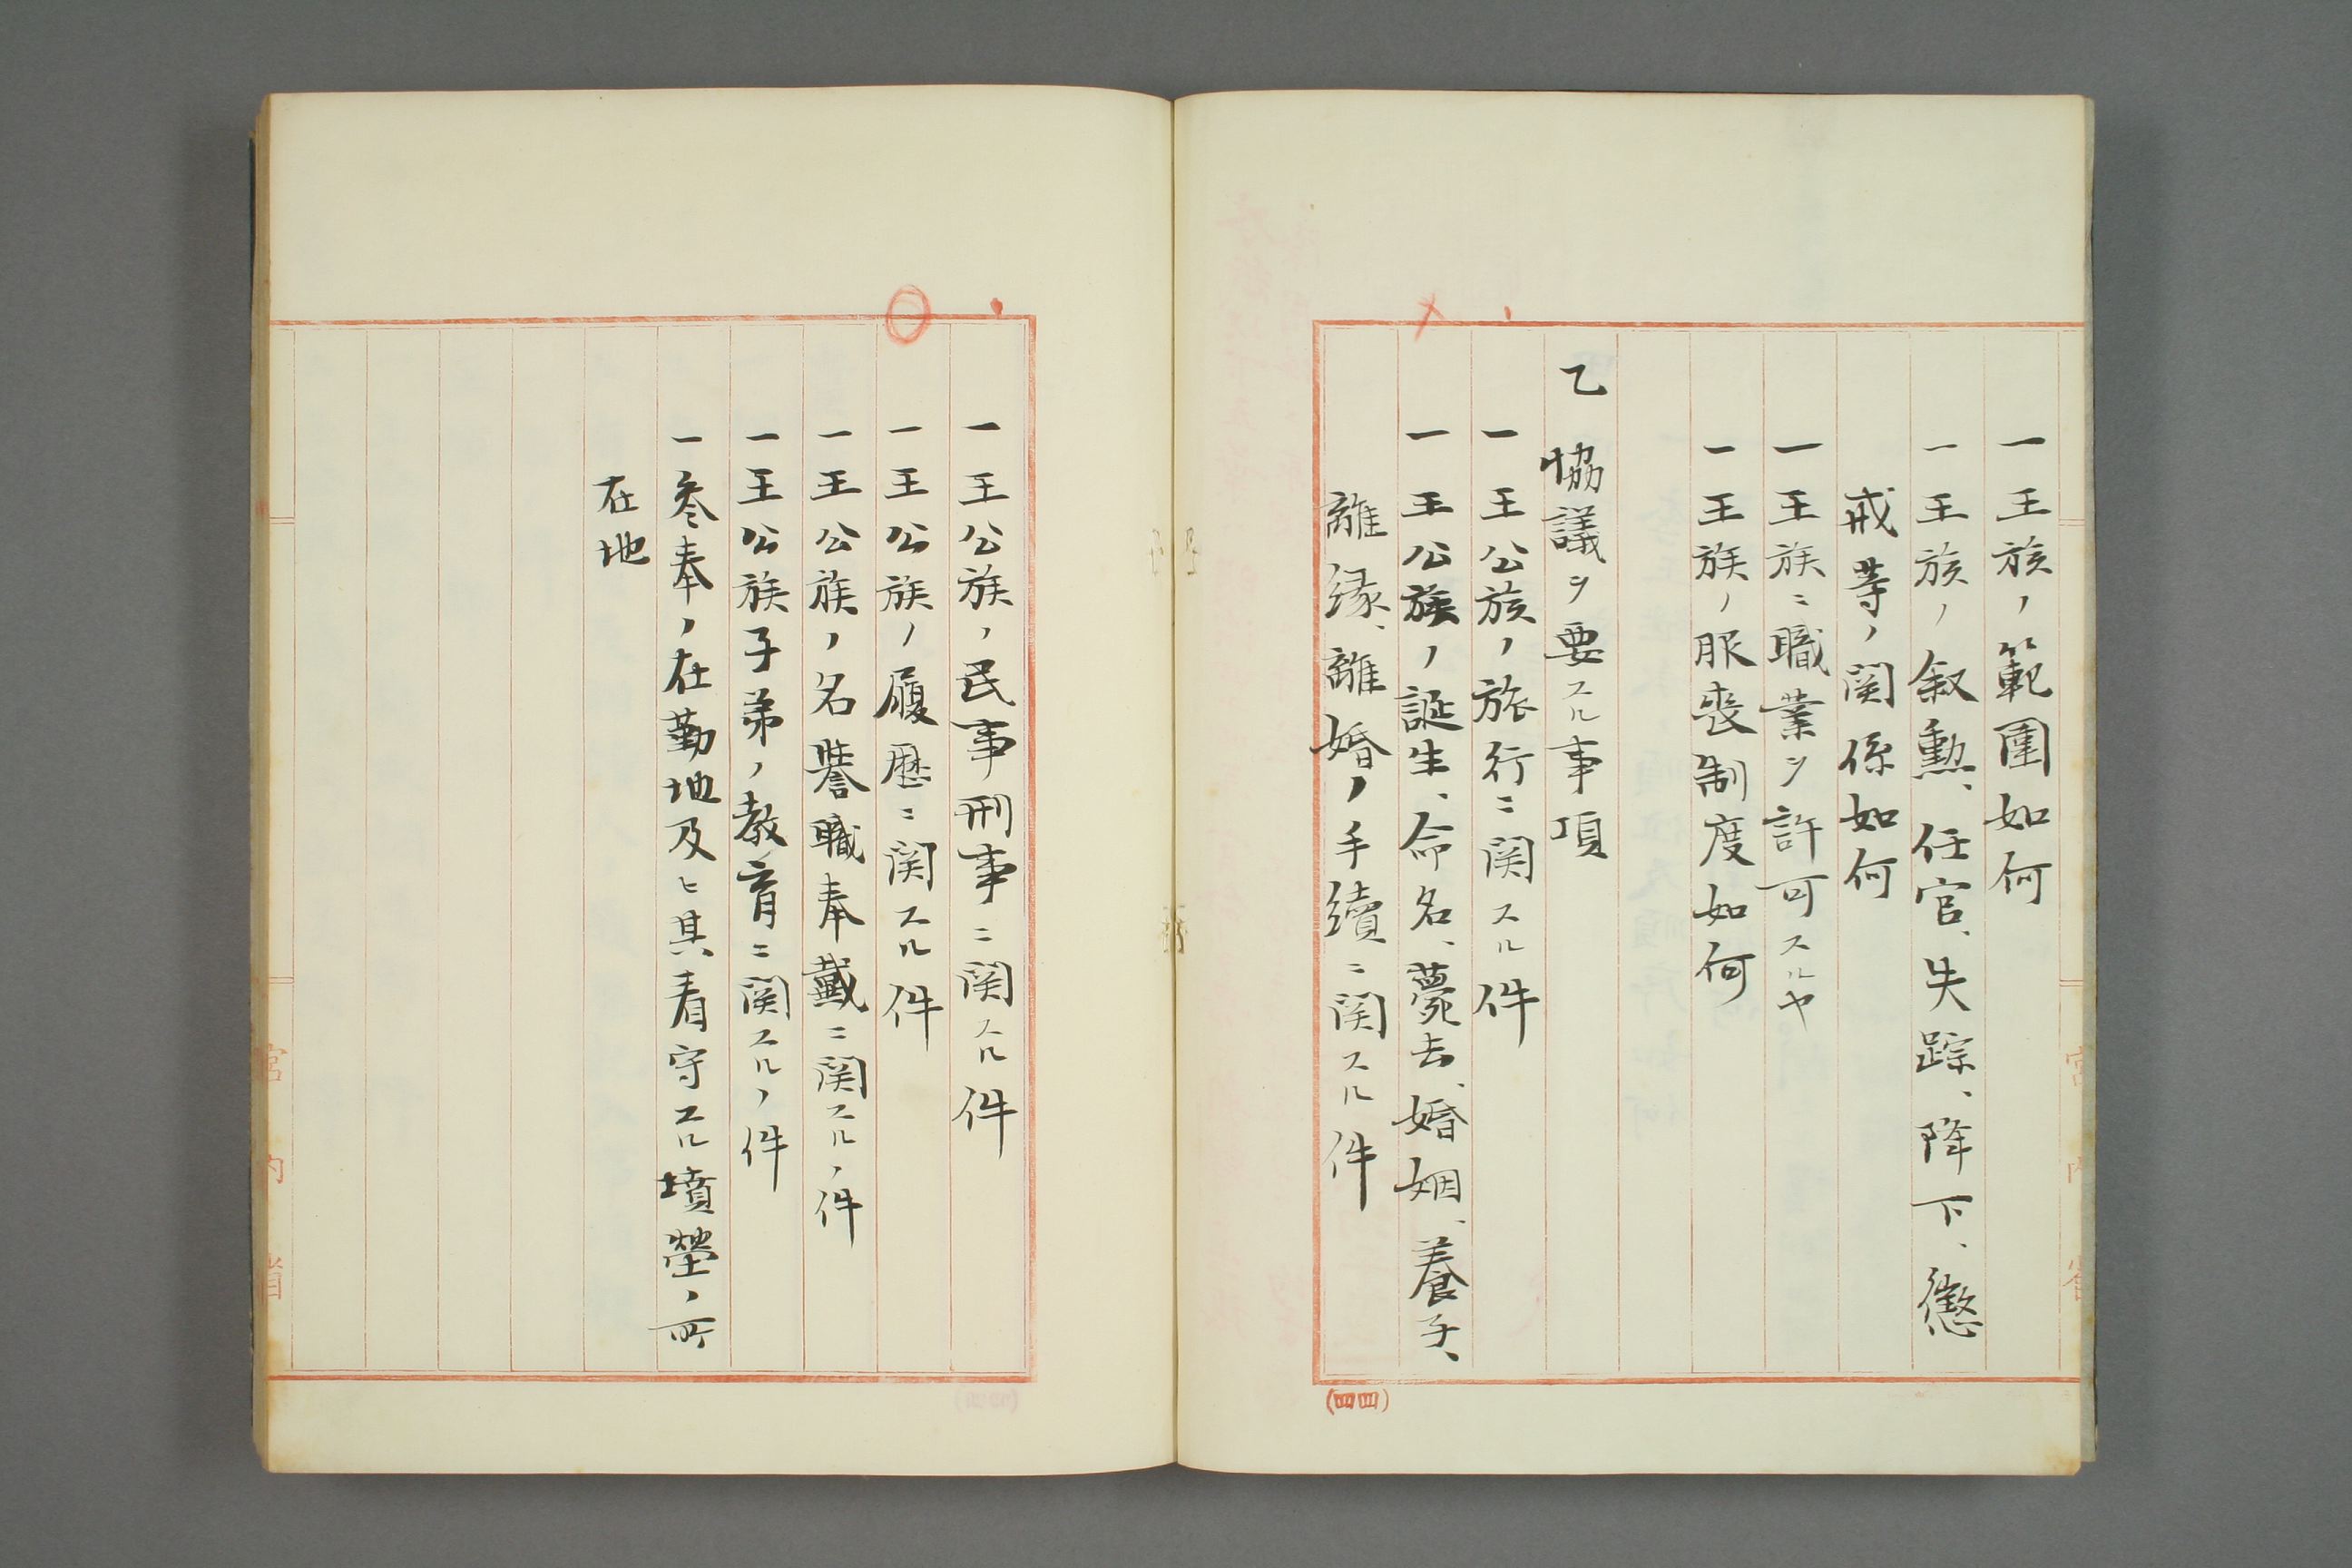 一王族ノ範囲如何
一王族ノ叙勲、任官、失踪、降下、懲
戒等ノ関係如何
一王族ニ職業ヲ許可スルヤ
一王族ノ服喪制度如何
乙 協議ヲ要スル事項
一王公族ノ旅行ニ関スル件
一王公族ノ誕生、命名、薨去、婚姻、養子、
離縁、離婚ノ手続ニ関スル件
(四四)
一王公族ノ民事刑事ニ関スル件
一王公族ノ履歴ニ関スル件
一王公族ノ名誉職奉戴ニ関スルノ件
一王公族子弟ノ教育ニ関スルノ件
一参奉ノ在勤地及ヒ其看守スル墳塋ノ所
在地
宮内省